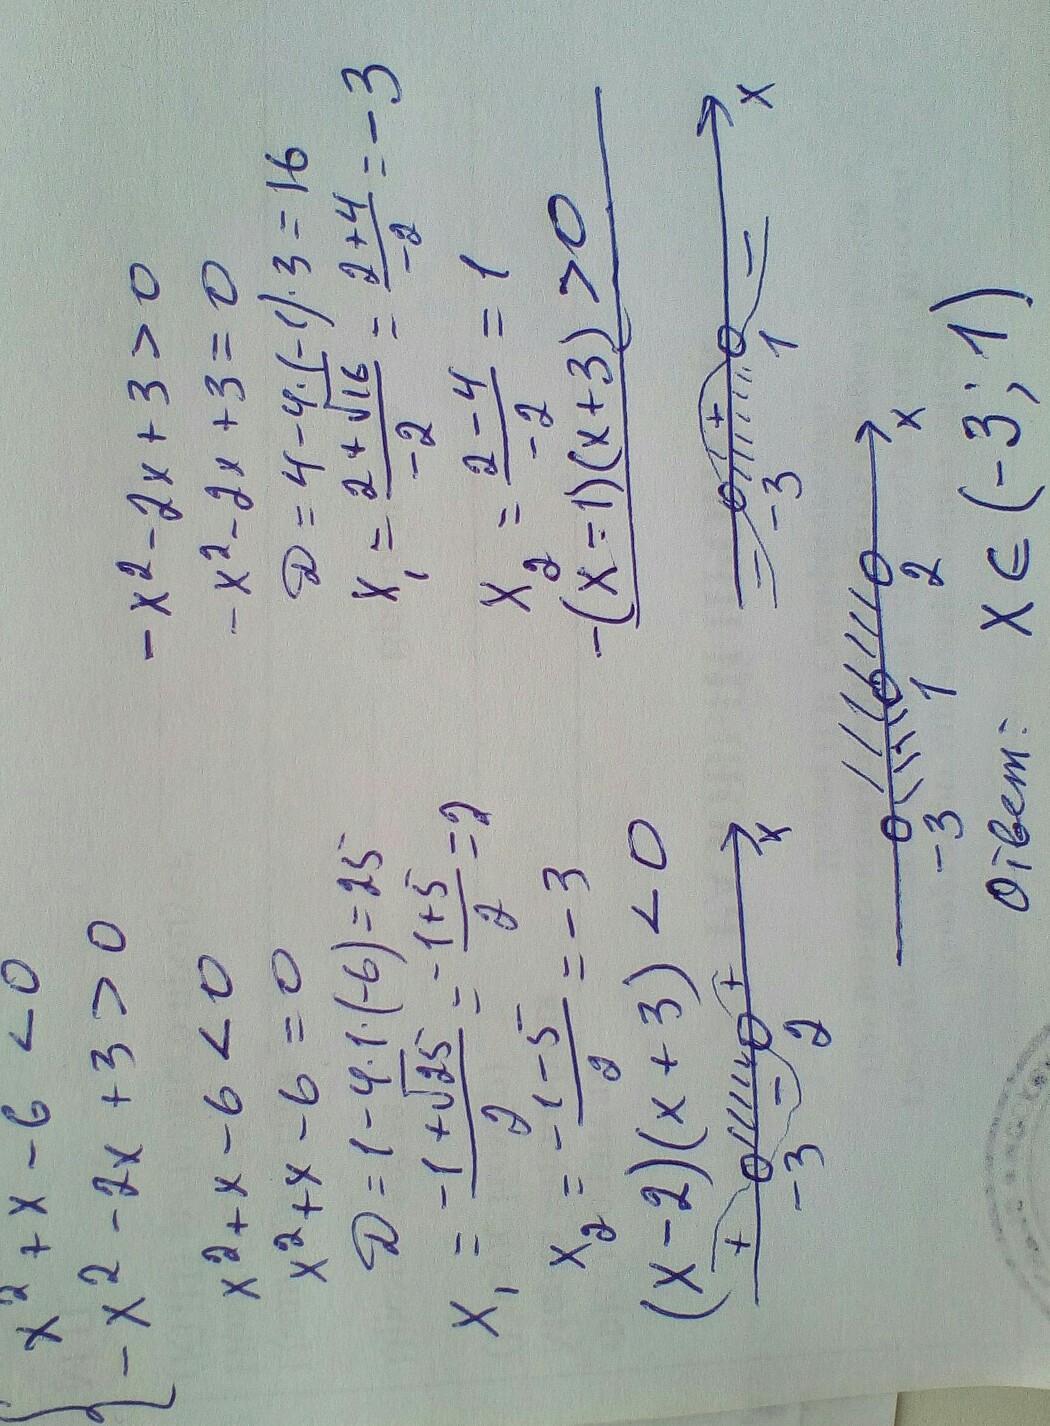 x² + x - 6 < 0
-x² - 2x + 3 > 0
x² + x - 6 < 0
x² + x - 6 = 0
D = 1 - 4·1·(-6) = 25
x₁ = (-1 + √25)/2 = (-1+5)/2 = 2
x₂ = (-1-5)/2 = -3
(x - 2)(x + 3) < 0
+ - +
-3 2 x
-x² - 2x + 3 > 0
-x² - 2x + 3 = 0
D = 4 - 4·(-1)·3 = 16
x₁ = (2 + √16)/-2 = (2+4)/-2 = -3
x₂ = (2-4)/-2 = 1
-(x - 1)(x + 3) > 0
- + -
-3 1 x
-3 1 2 x
Ответ: x ∈ (-3; 1)